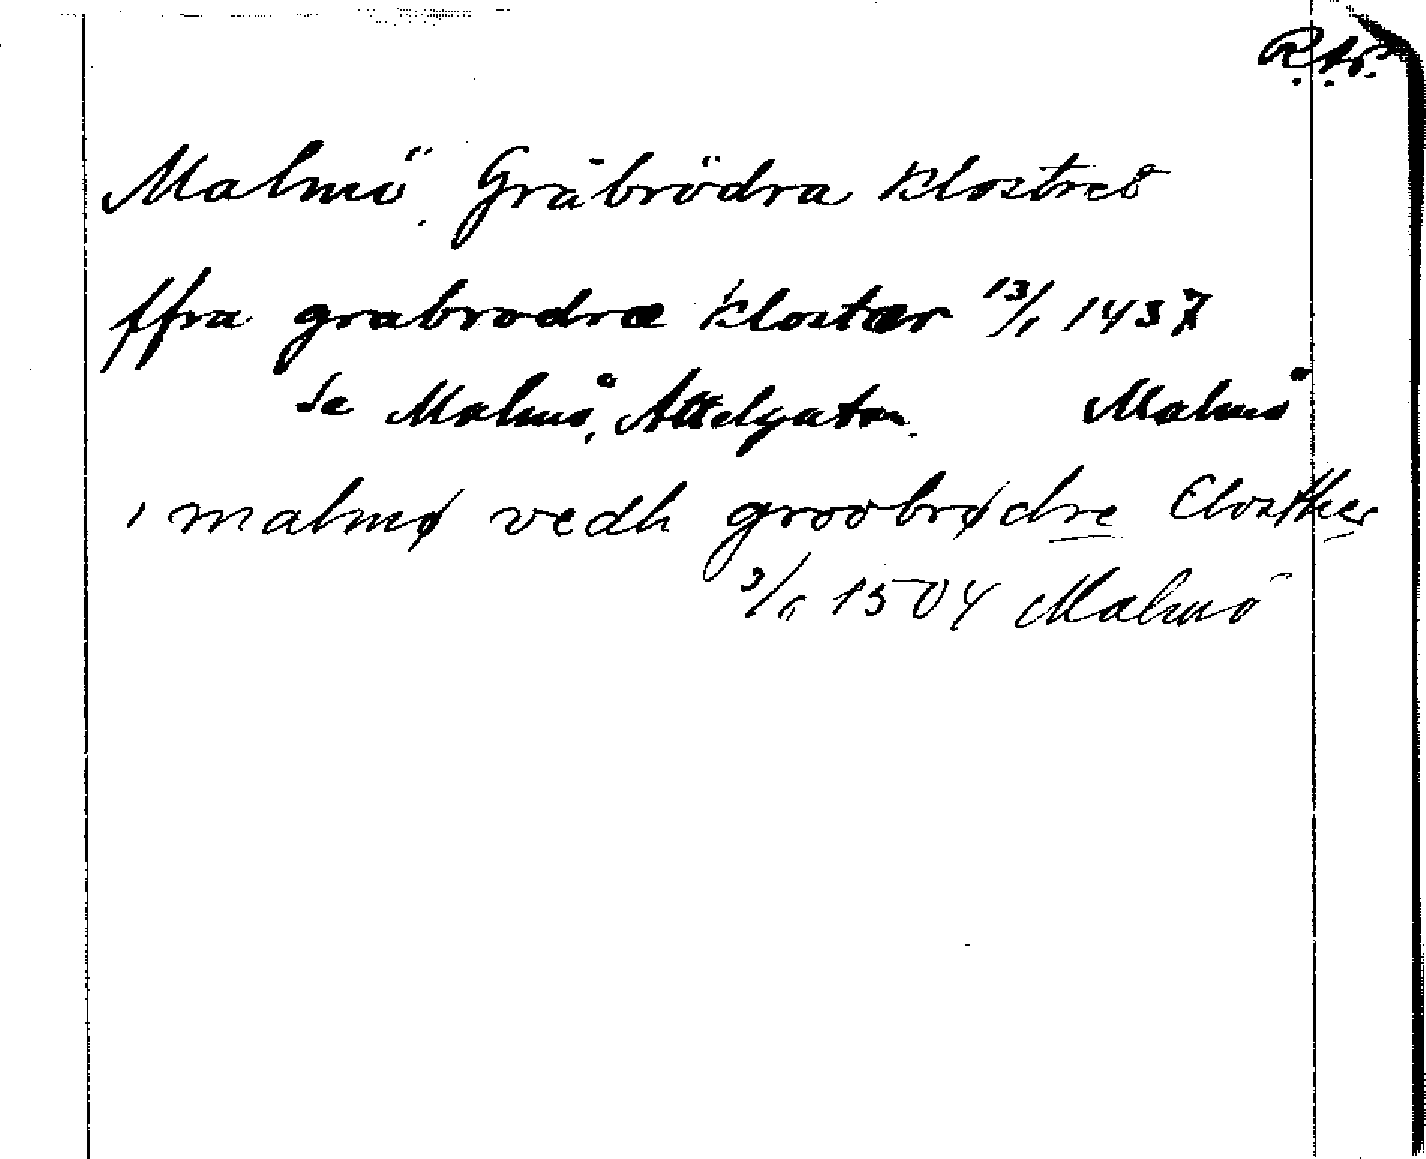 R.Ar.
Malmö. Gråbrödra klostret
ffra grabrodræ klostær 13/1 1437
Se Malmö, Adelgatan. Malmö
i malmø vedh groobrødre Closther
3/6 1504 Malmö